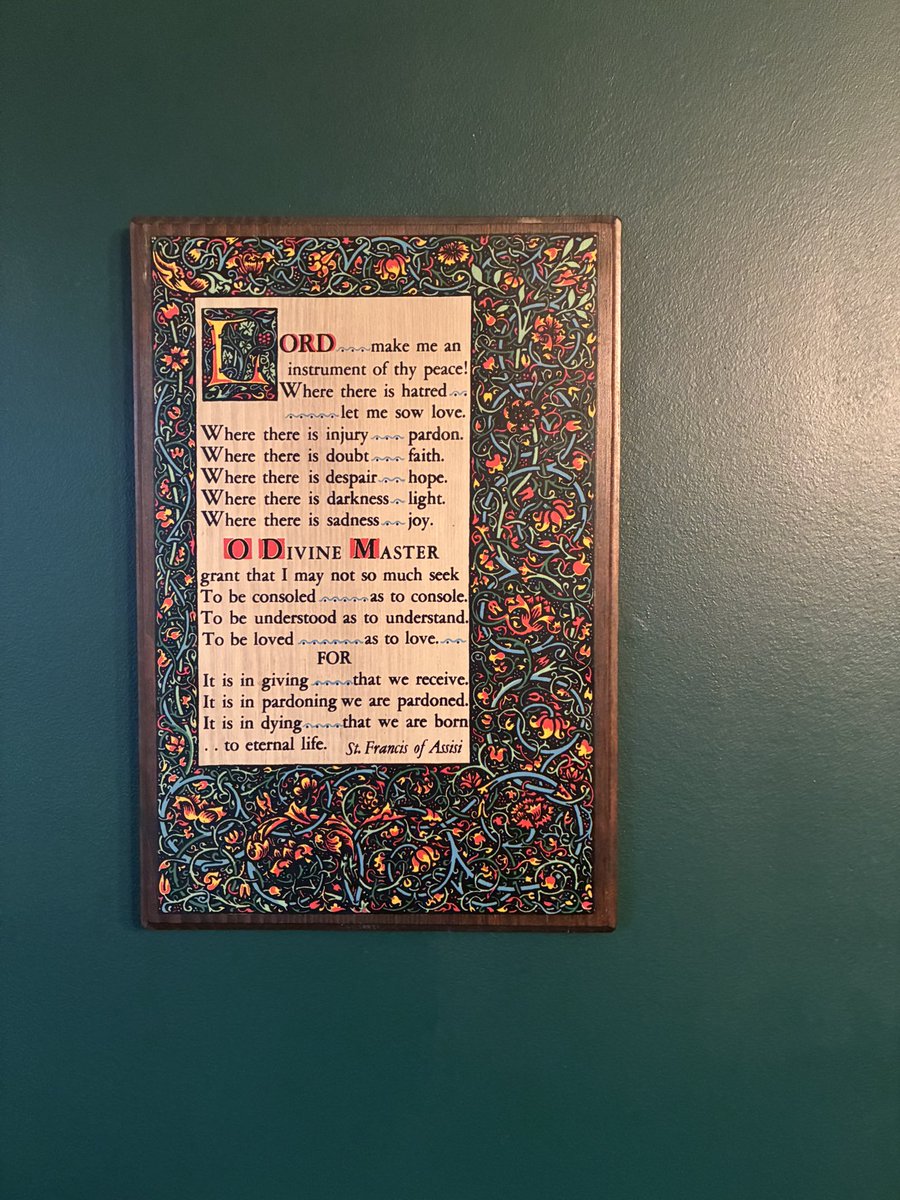 LORD make me an
instrument of thy peace!
Where there is hatred
let me sow love.
Where there is injury pardon.
Where there is doubt faith.
Where there is despair hope.
Where there is darkness light.
Where there is sadness joy.
O DIVINE MASTER
grant that I may not so much seek
To be consoled as to console.
To be understood as to understand.
To be loved as to love.
FOR
It is in giving that we receive.
It is in pardoning we are pardoned.
It is in dying that we are born
.. to eternal life. St. Francis of Assisi